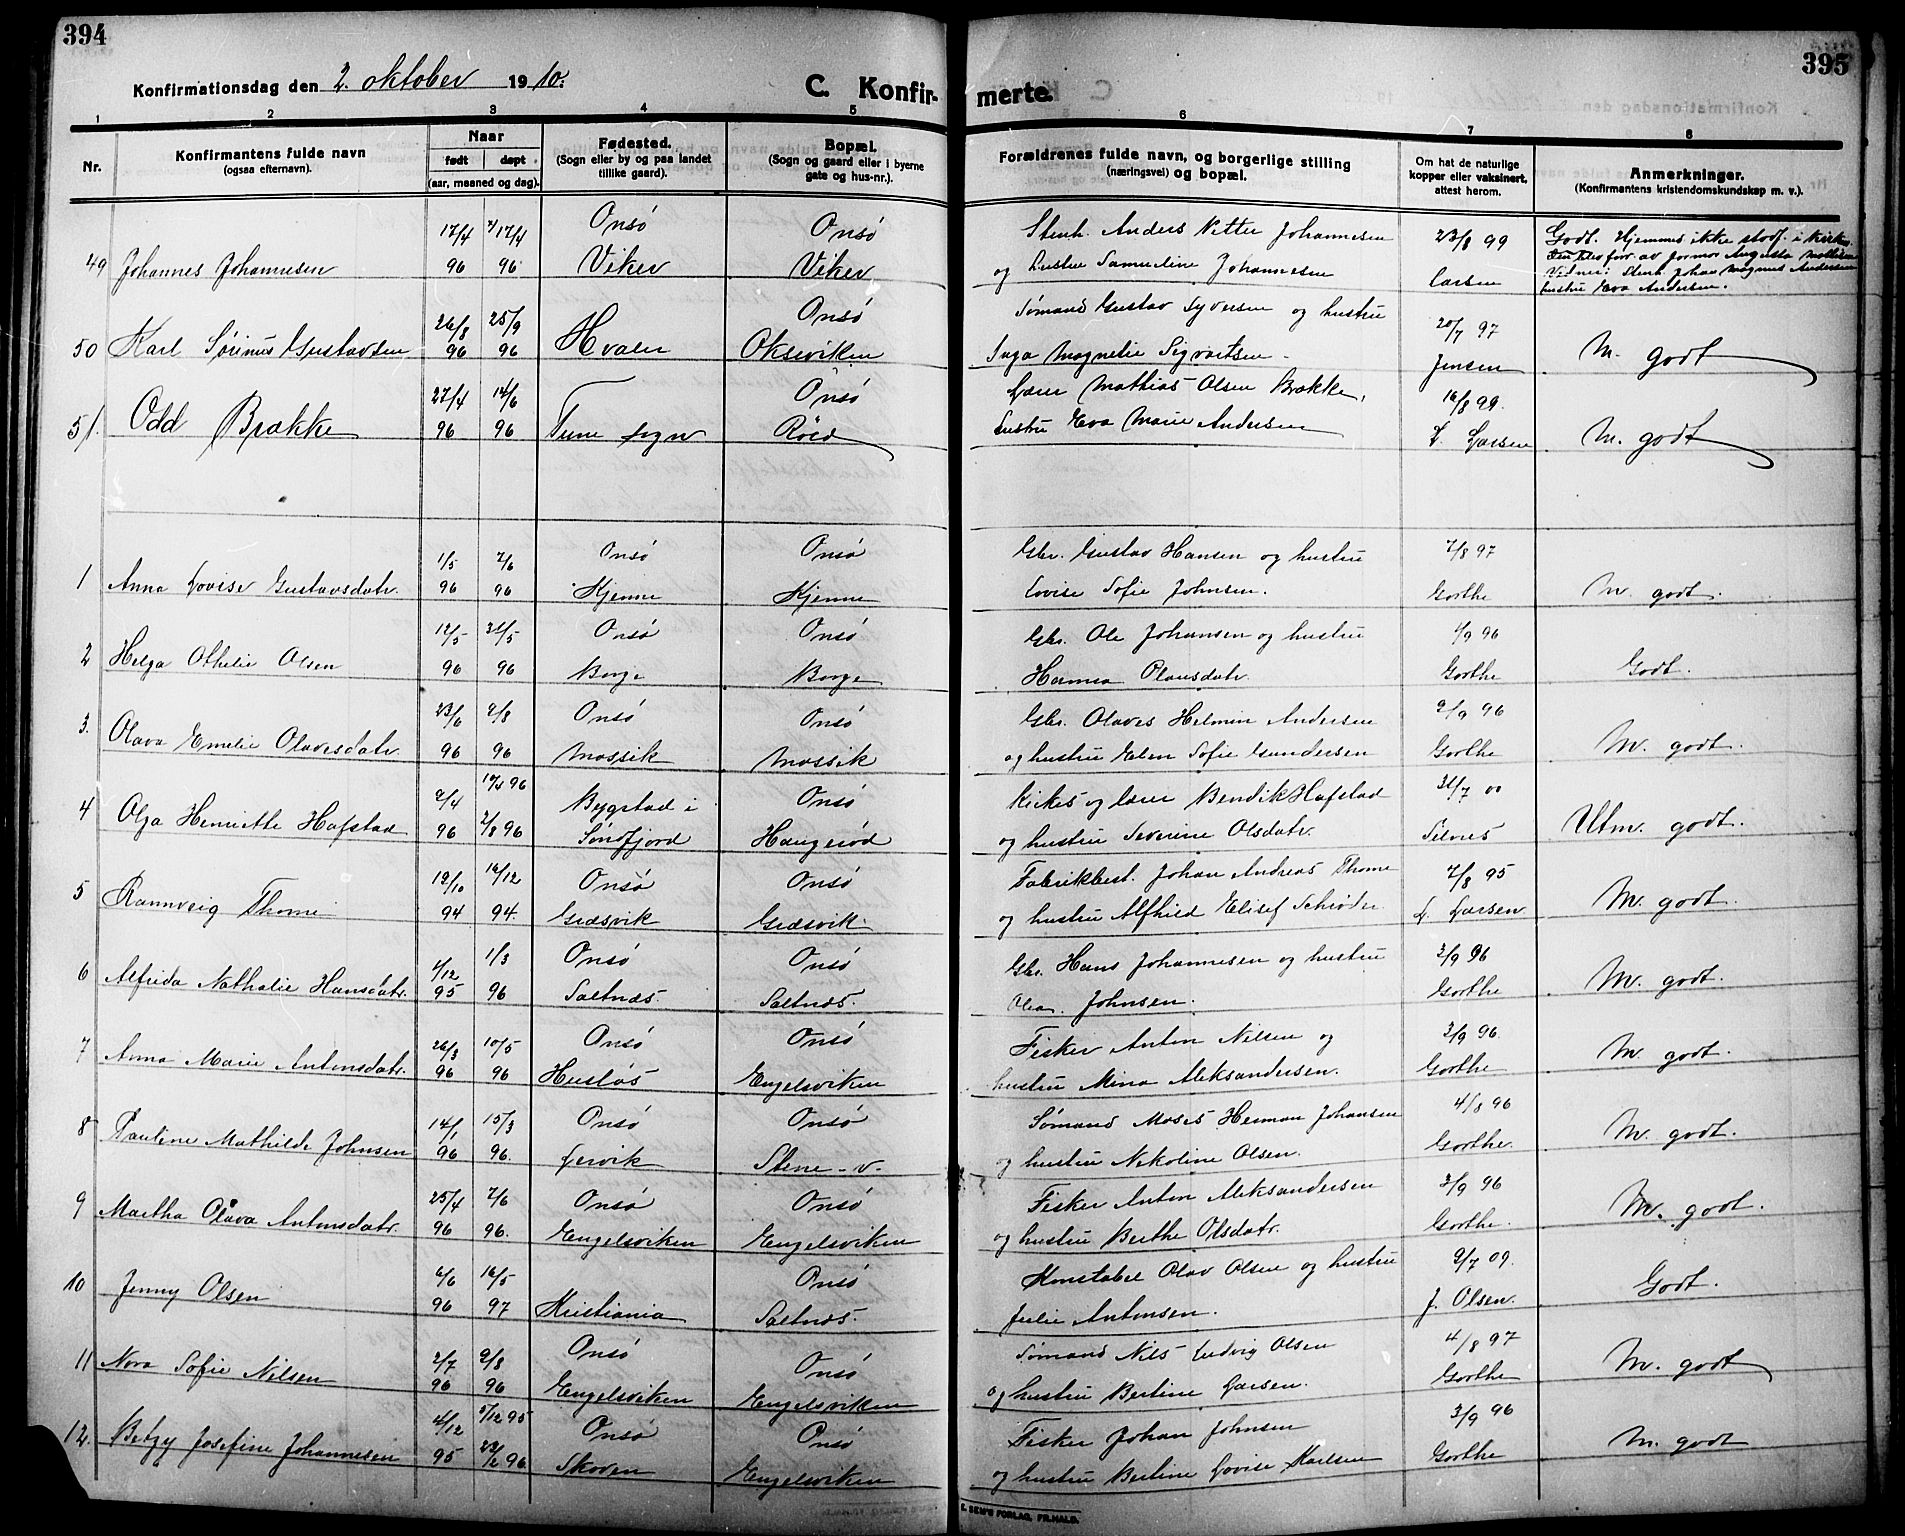 394
Konfirmationsdag den 2. oktober 1910.
C. Konfir-
1 2 3 4 5
Nr.
Konfirmantens fulde navn
(ogsaa efternavn).
Naar
født døpt
(aar, maaned og dag).
Fødested.
(Sogn eller by og paa landet
tillike gaard).
Bopæl.
(Sogn og gaard eller i byerne
gate og hus-nr.).
17/4 17/4 Onsø Onsø
49 Johannes Johannesen 96 96 Viker Viker
26/8 25/9 Onsø
50 Karl Sørinus Gustavsen 96 96 Hvaler Oksviken
27/4 14/6 Onsø
51. Odd Brække 96 96 Tune sogn Röed
1/5 7/6 Onsø Onsø
1 Anna Lovise Gustavsdatr. 96 96 Kjenne Kjenne
12/5 31/5 Onsø Onsø
2 Helga Othelie Olsen 96 96 Borge Borge
23/6 9/8 Onsø Onsø
3. Olava Emelie Olavesdatr. 96 96 Mossik Mossik
9/4 19/4 96 Bygstad i Onsø
4 Olga Henriette Hafstad 96 2/8 96 Søndfjord Haugerød
19/10 16/12 Onsø Onsø
5 Rannveig Thorne 94 94. Græsvik Græsvik.
1/12 1/3 Onsø Onsø
6 Alfrida Nathalie Hansdatr. 95 96 Saltnæs. Saltnæs.
26/3 10/5 Onsø Onsø
7 Anna Marie Antonsdatr. 96 96 Husløs Engelsviken
14/1 15/3 Onsø Onsø
8 Pauline Mathilde Johnsen 96 96. Lervik Stene-v-
25/4 7/6 Onsø Onsø
9 Martha Olava Antonsdatr. 96 96. Engelsviken Engelsviken
6/6 16/5 Onsø
10 Jenny Olsen 96 97 Kristiania Saltnæs.
2/7 9/8 Onsø Onsø
11 Nora Sofie Nilsen 96 96 Engelsviken Engelsviken
4/12 5/12 95 Onsø Onsø
12. Betzy Josefine Johannesen 95 23/2 96 Skoven Engelsviken
395
merte.
6 7 8
Forældrenes fulde navn, og borgerlige stilling
(næringsvei) og bopæl.
Om hat de naturlige
kopper eller vaksinert,
attest herom.
Anmerkninger.
(Konfirmantens kristendomskundskap m. v.).
Stenh. Anders Netter Johannesen 23/8 99 Godt. Hjemmed ikke stadf. i kirken.
og hustru Samueline Johannesen Larsen
Vidner: Stenh. Johan Magnus Andersen
hustru Eva Andersen.
Sømand Gustav Syversen og hustru 20/7 97
Inga Magnelie Sigvartsen Jensen M. godt
Lærer Mathias Olsen Brække, 16/8 99.
hustru Eva Marie Andersen L. Larsen M. godt
Gbr. Gustav Hansen og hustru 7/8 97
Lovise Sofie Johnsen. Gorthe M. godt.
Gbr. Ole Johansen og hustru 1/9 96
Hanna Olausdatr. Gorthe Godt.
Gbr. Olaves Helmin Andersen 2/9 96
og hustru Elen Sofie Gundersen Gorthe M. godt.
Kirkes. og lærer Bendik Hafstad 31/7 00
og hustru Severine Olsdatr. Selnes Utm. godt.
Fabrikbest. Johan Andreas Thorne 7/8 95
og hustru Alfhild Elisef Schrøder L. Larsen M. godt.
Gbr. Hans Johannesen og hustru 3/9 96
Olea Johnsen. Gorthe M. godt.
Fisker Anton Nilsen og 3/9 96.
hustru Mina Aleksandersen. Gorthe M. godt.
Sømand Moses Herman Johansen 4/8 96
og hustru Nikoline Olsen. Gorthe. M. godt.
Fisker Anton Aleksandersen 3/9 96
og hustru Berthe Olsdatr. Gorthe. M. godt.
Konstabel Olav Olsen og hustru 9/7 09.
Julie Antonsen. J. Olsen. Godt.
Sømand Nils Ludvig Olsen 4/8 97
og hustru Bertine Larsen. Gorthe M. godt
Fisker Johan Johnsen 3/9 96
og hustru Bertine Lovise Karlsen Gorthe M. godt
E. SEM'S FORLAG, FR.HALD.